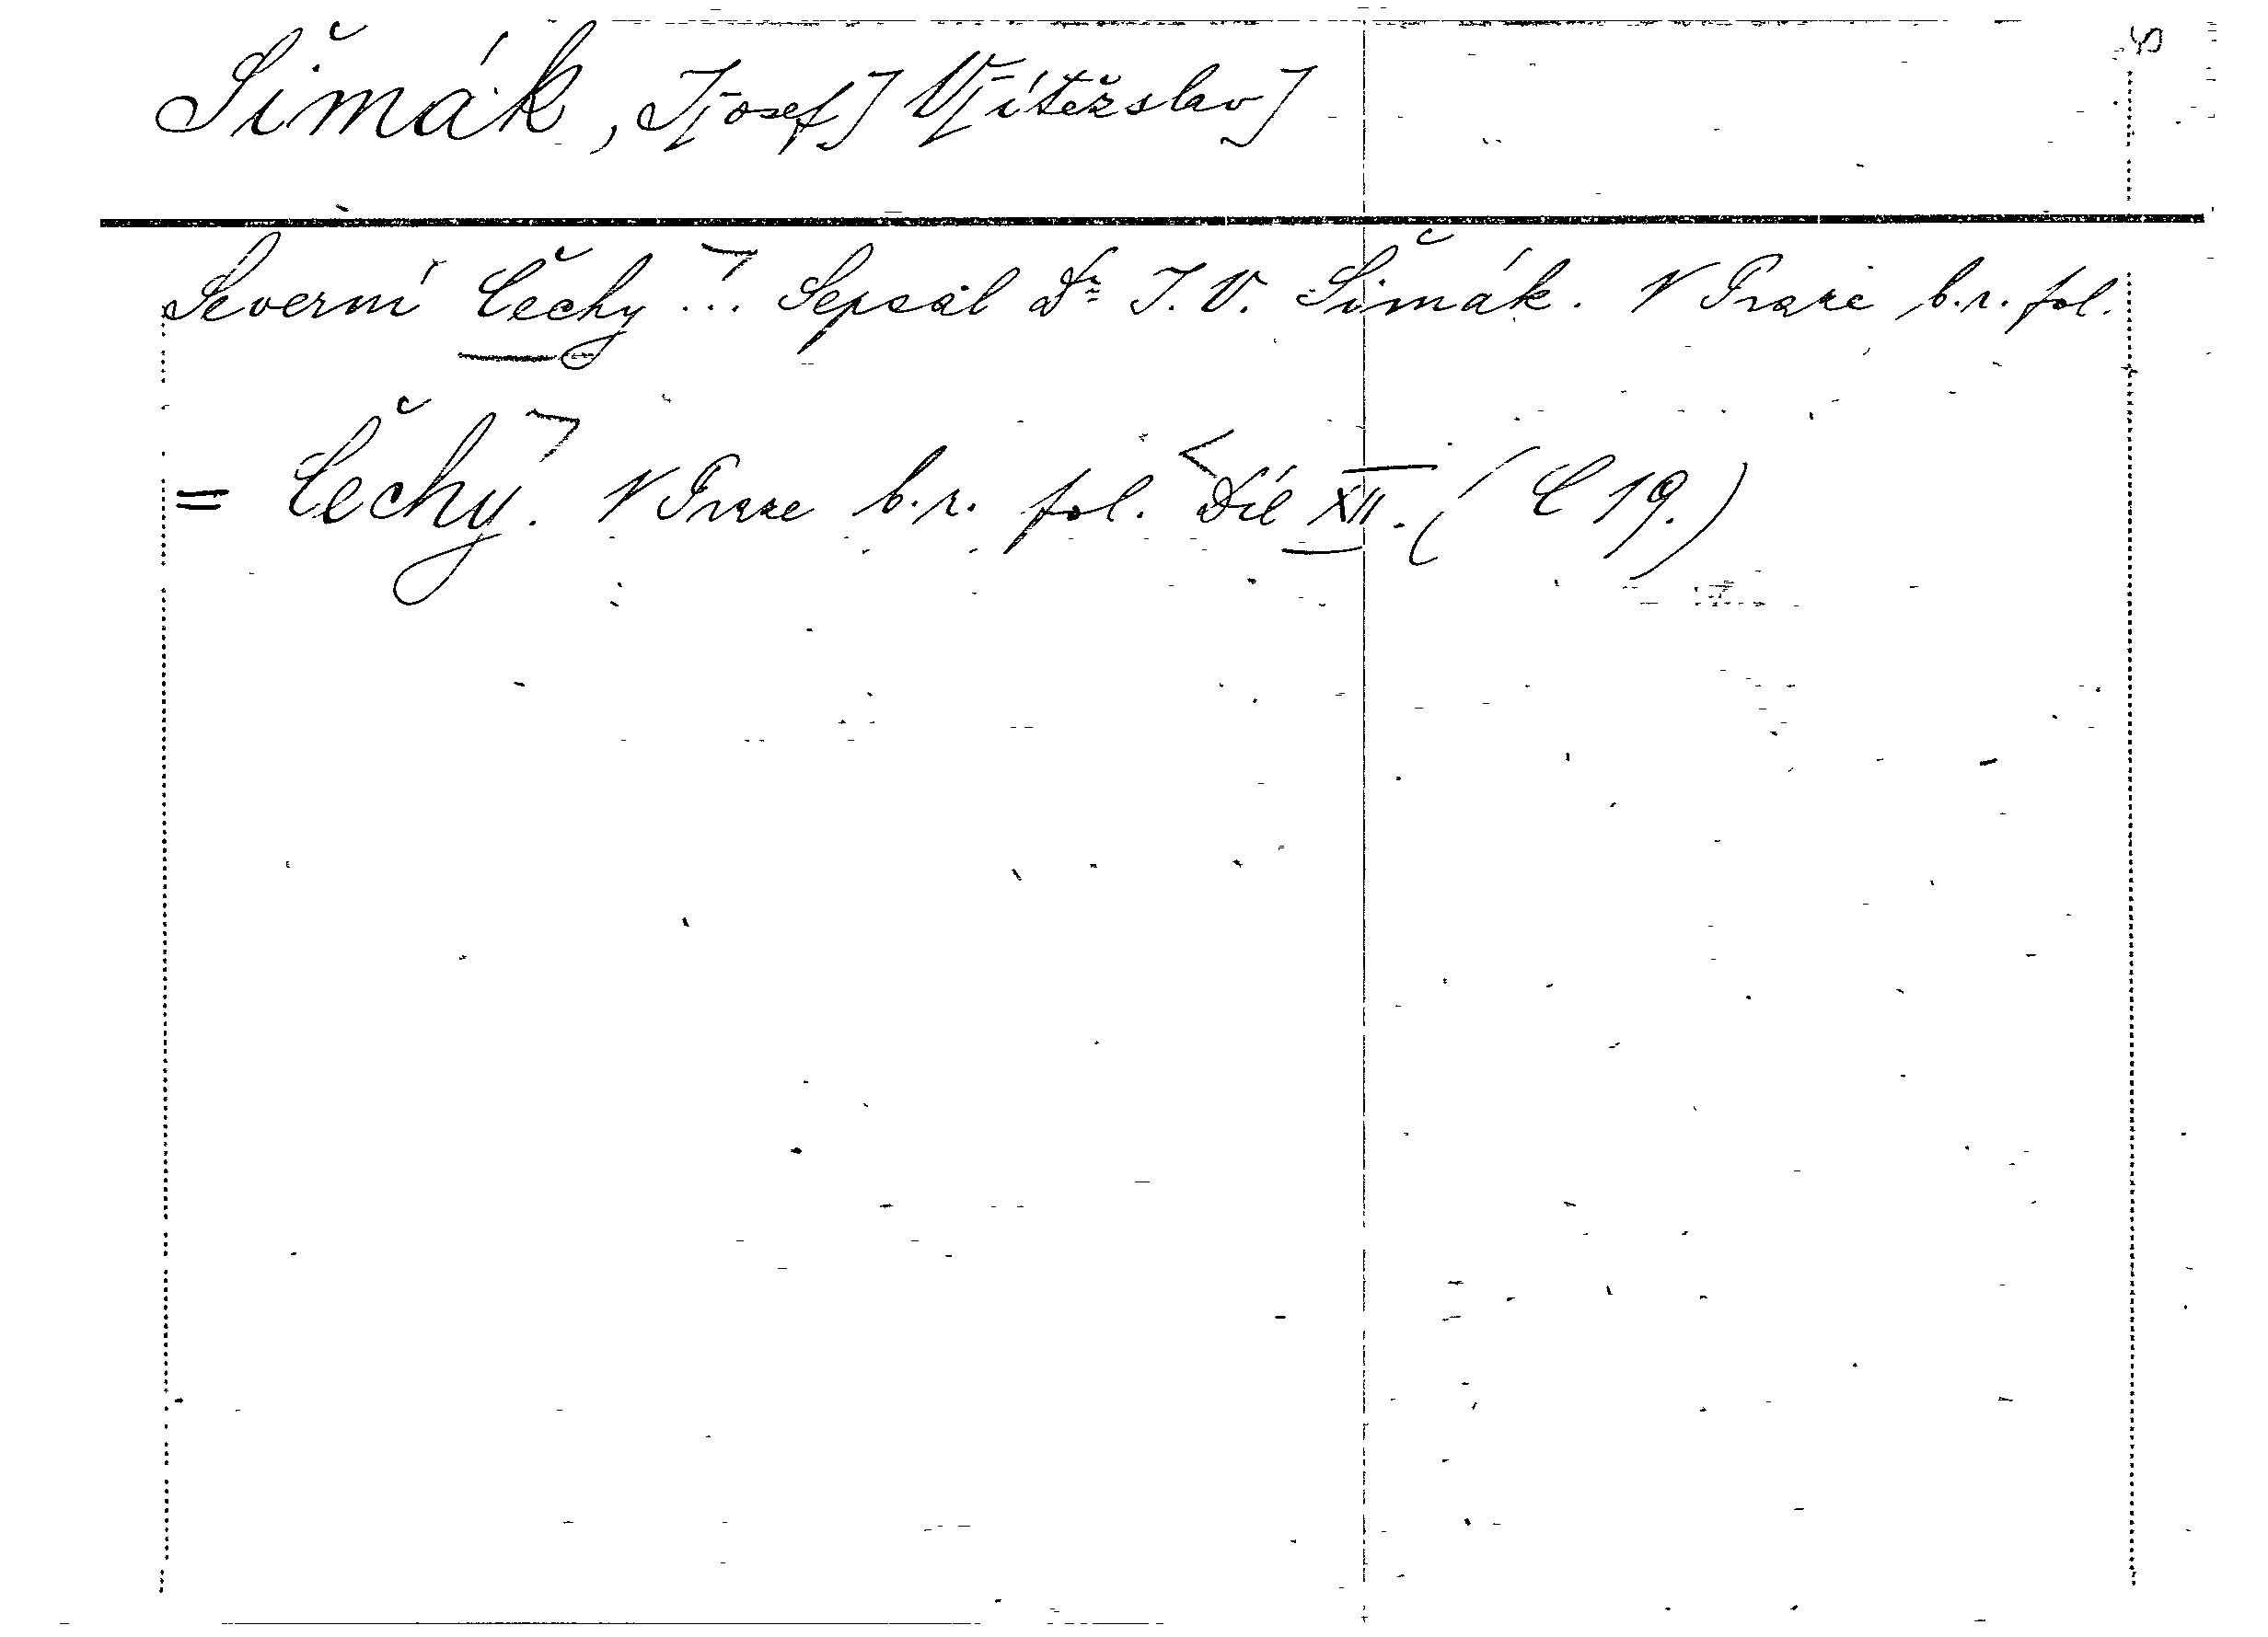 Šimák, J[osef] V[ítězslav]
Severní Čechy ... Sepsal Dr J. V. Šimák. V Praze b. r. fol.
= Čechy. V Praze b. r. fol. Díl XII. (C 19.)